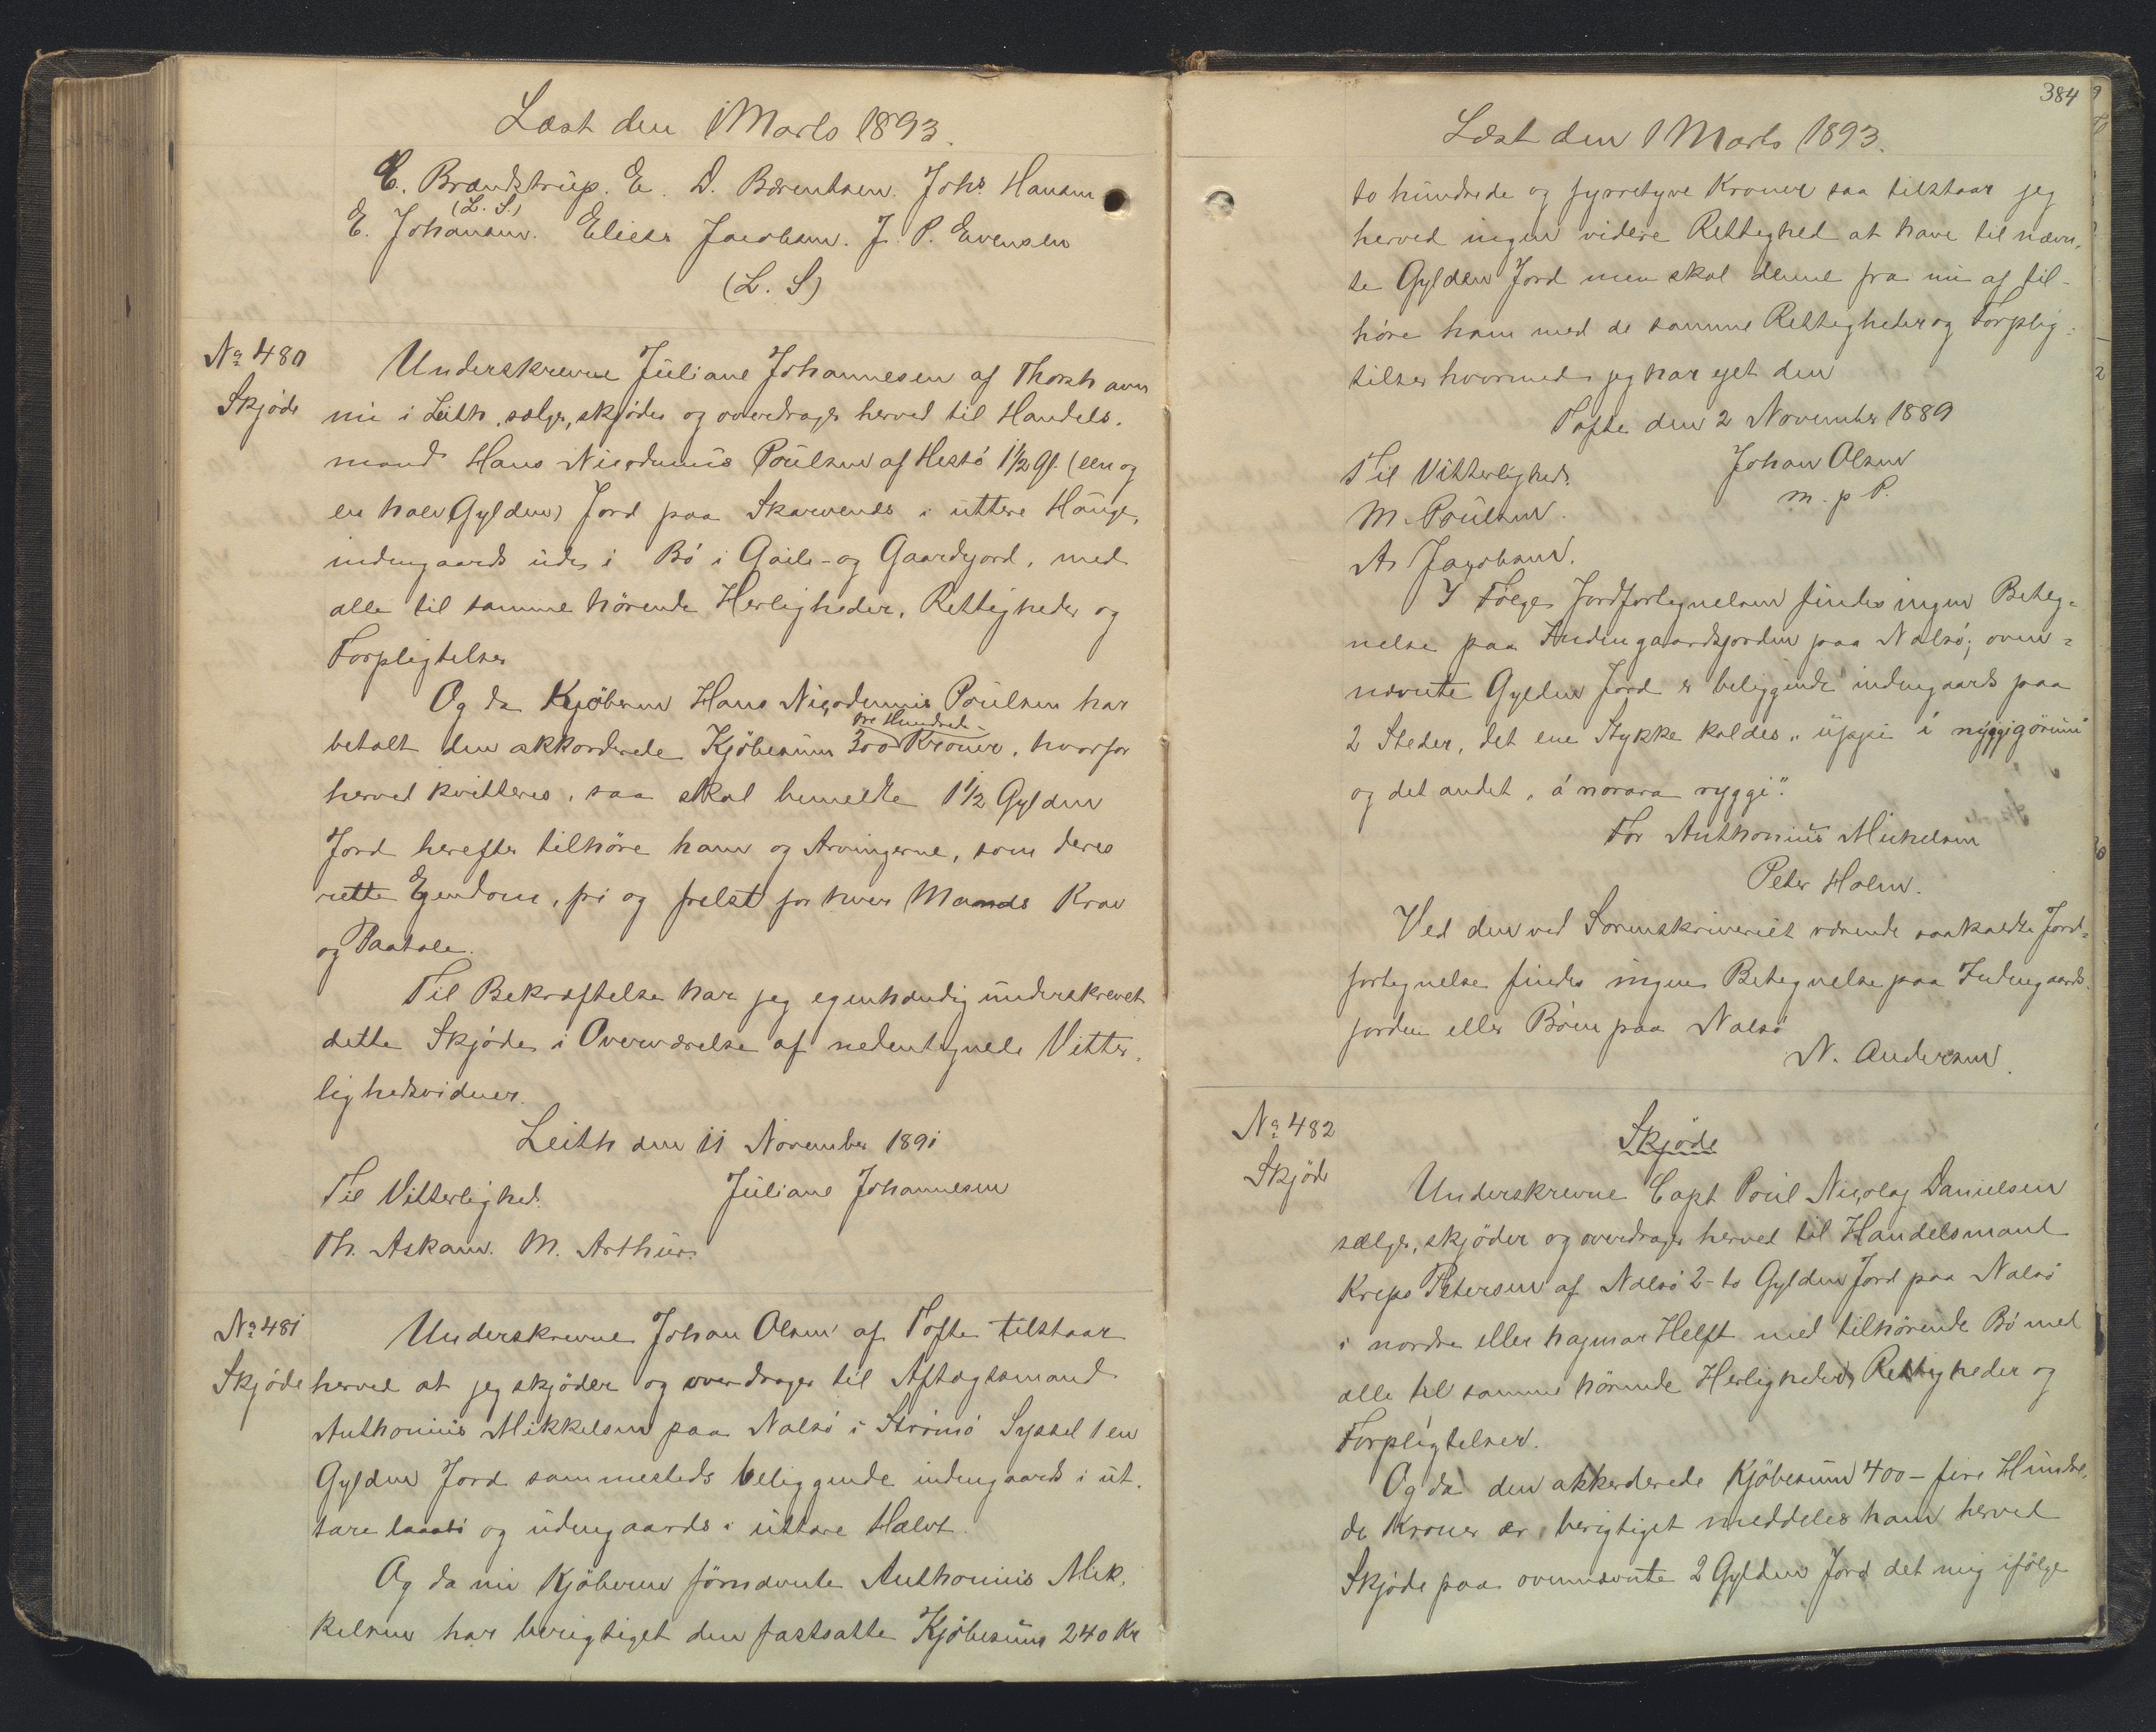 Læst den 1 Marts 1893.
E. Brandstrup. E. D. Bærentsen. Johs Hansen
(L. S.)
E. Johansen. Elieser Jacobsen. J. P. Evensen
(L. S)
No 480
Skjøde
Underskrevne Juliane Johannesen af Thorshavn
nu i Leith, sælger, skjøder og overdrager herved til Handels-
mand Hans Nicodemus Poulsen af Hestø 1½ Gl. (een og
en halv Gylden) Jord paa Skarvenes i uttere Hauge,
indengaards udes i Bø i Gaile- og Gaardgord, med
alle til samme hørende Herligheder, Rettigheder og
Forpligtelser
Og da Kjøberen Hans Nicodemus Poulsen har
betalt den akkorderede Kjøbesum 300 Kroner, hvorfor
tre Hundrede
herved kvitteres, saa skal bemeldte 1½ Gylden
Jord herefter tilhøre ham og Arvingerne, som deres
rette Ejendom, fri og frelst for hver Mands Krav
og Paatale.
Til Bekræftelse har jeg egenhændig underskrevet
dette Skjøde i Overværelse af nedentegnede Vitter-
lighedsvidner.
Leith den 11 November 1891
Til Vitterlighed. Juliane Johannesen
Th. Askam. M. Arthur.
No 481
Skjøde
Underskrevne Johan Olsen af Tofte tilstaar
herved at jeg skjøder og overdrager til Aftægtsmand
Anthonius Mikkelsen paa Nalsø i Strømø Syssel 1 en
Gylden Jord sammesteds beliggende indengaards i üt-
tare laaabi og udengaards i üttare Halvt.
Og da nu Kjøberen førnævnte Anthonius Mik-
kelsen har berigtiget den fastsatte Kjøbesum 240 Kr
384
Læst den 1 Marts 1893.
to hundrede og fyrretyve Kroner saa tilstaar jeg
herved ingen videre Rettighed at have til nævn-
te Gylden Jord men skal denne fra nu af til-
høre ham med de samme Rettigheder og Forplig-
telser hvormed jeg har ejet den
Tofte den 2 November 1889
Til Vitterlighed. Johan Olsen
M. Poulsen. m. p P.
A. Jacobsen.
I Følge Jordfortegnelsen findes ingen Beteg-
nelse paa Indengaardsjorden paa Nalsø; oven-
nævnte Gylden Jord er beliggende indengaards paa
2 Steder, det ene Stykke kaldes "üppi i nýggjgørinu"
og det andet, "á norara ryggi".
For Anthonius Mikkelsen
Peter Holm.
Ved den ved Sorenskriveriet værende saakaldte Jord-
fortegnelse findes ingen Betegnelse paa Indengaards-
jorden eller Bøen paa Nalsø
N. Andersen.
No 482
Skjøde
Skjøde
Underskrevne Capt Poul Nicolaj Danielsen
sælger, skjøder og overdrager herved til Handelsmand
Kreps Petersen af Nalsø 2 - to Gylden Jord paa Nalsø
i nordre eller hagmar Helft med tilhørende Bø med
alle til samme hørende Herligheder, Rettigheder og
Forpligtelser.
Og da den akkorderede Kjøbesum 400 - fire Hundre-
de Kroner er berigtiget meddeles ham herved
Skjøde paa ovennævnte 2 Gylden Jord det mig ifølge